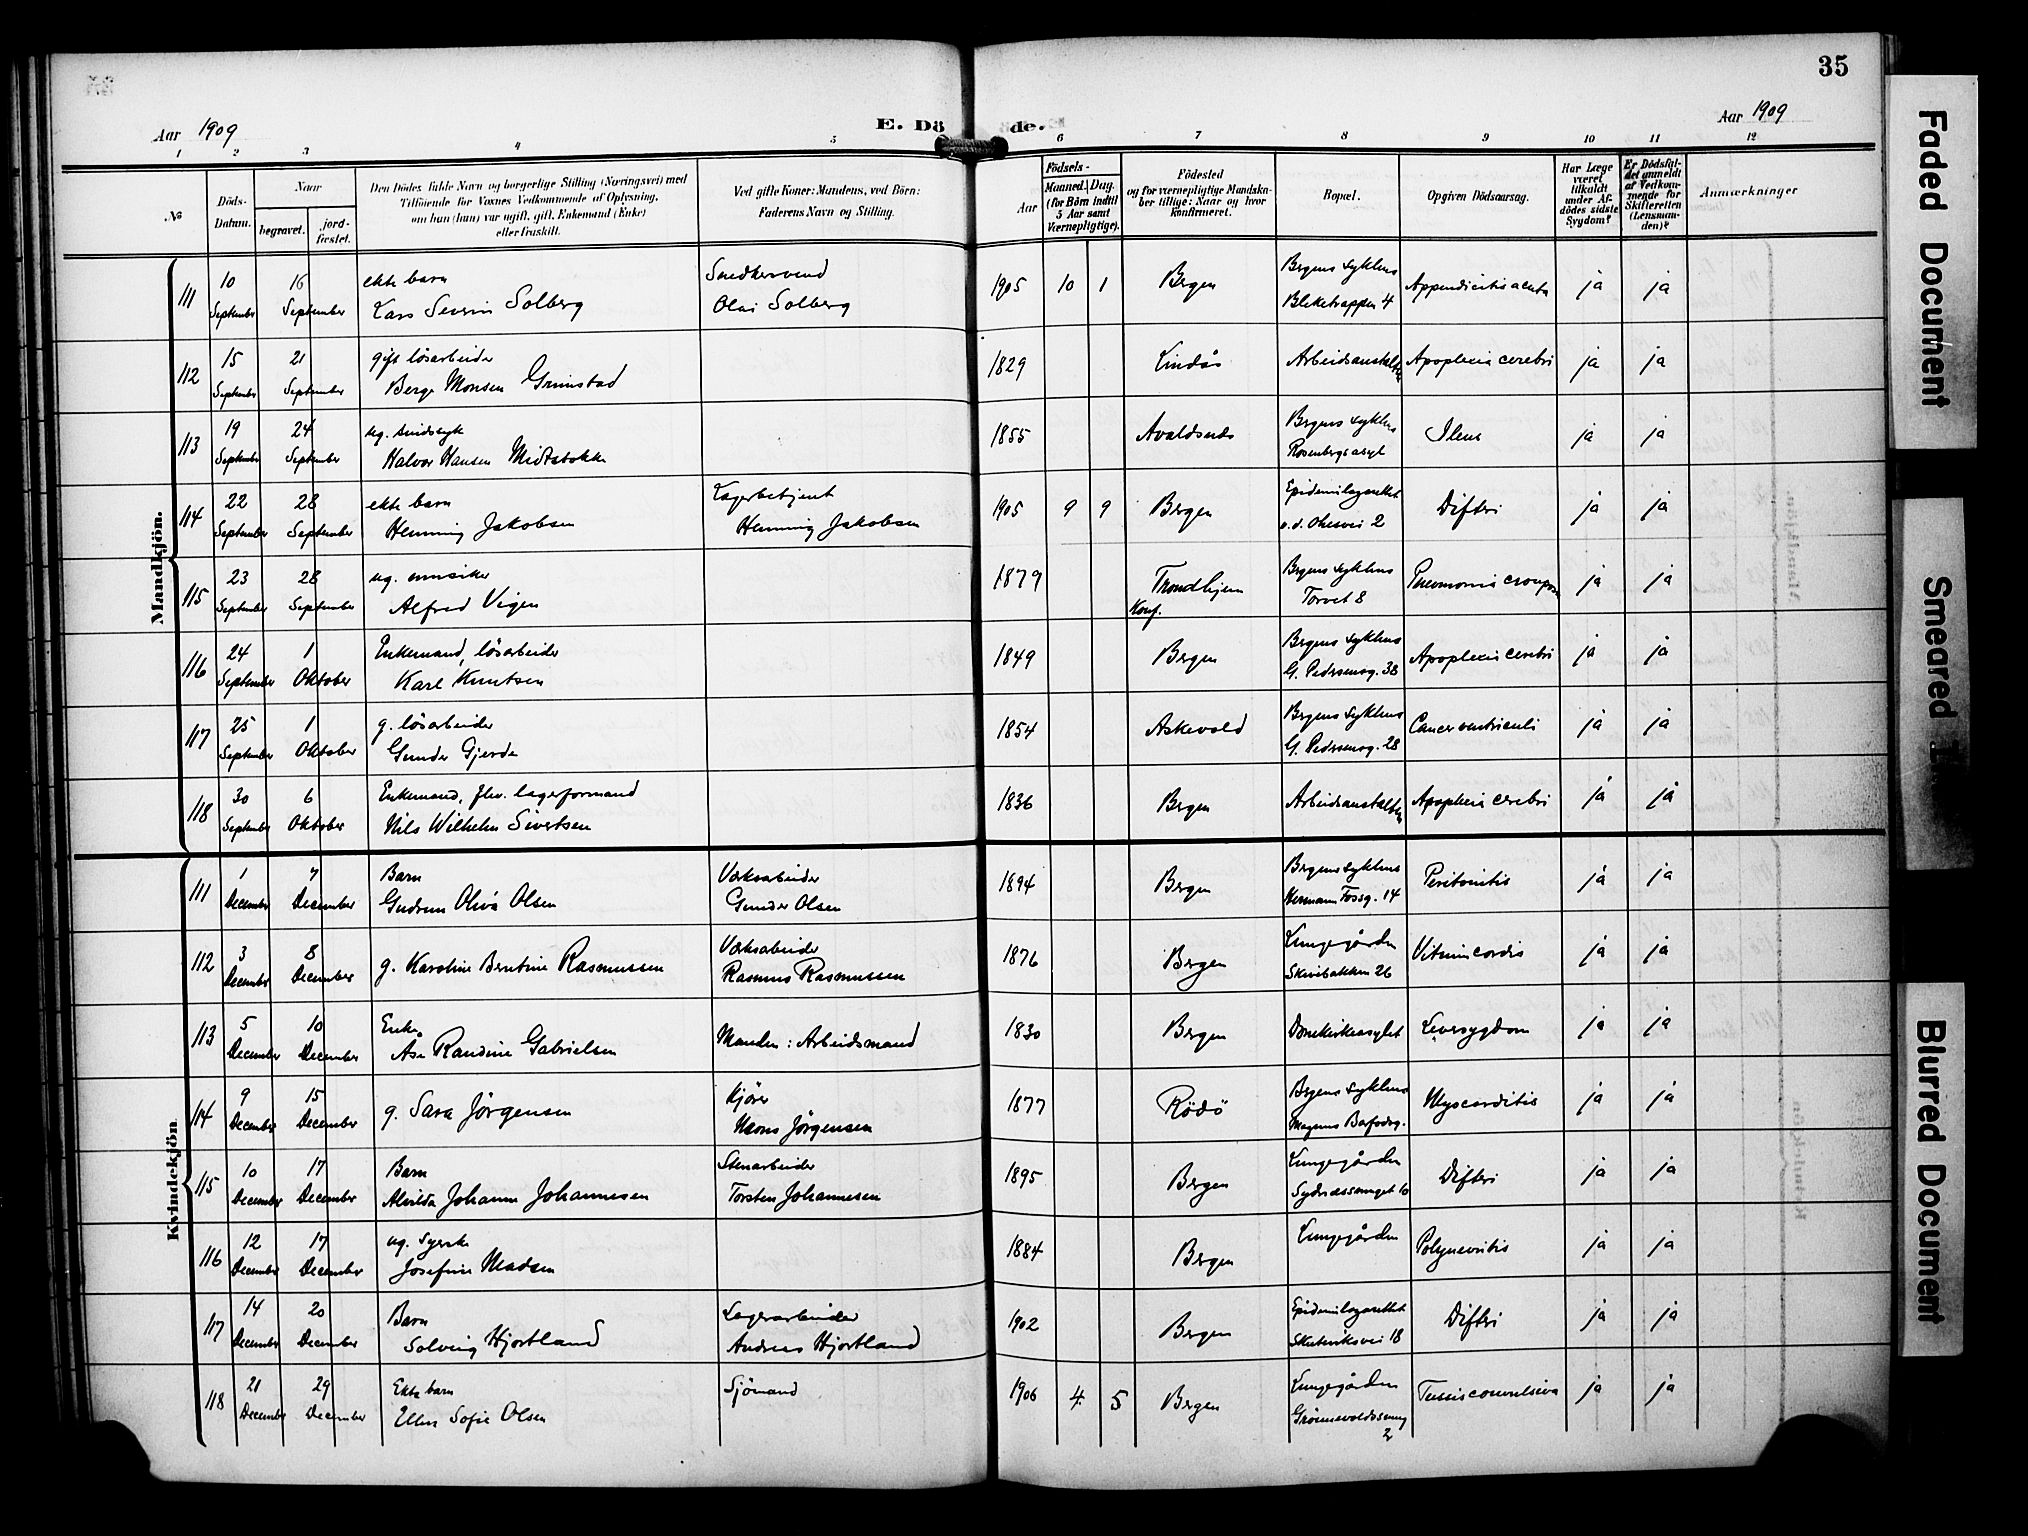 35
Aar 1909
E. Döde.
Aar 1909
1 2 3 4 5 6 7 8 9 10 11 12
№
Döds-Datum.
Naar
begravet.
jord-fæstet.
Den Dödes fulde Navn og borgerlige Stilling (Næringsvei) med
Tilföiende for Voxnes Vedkommende af Oplysning,
om han (hun) var ugift, gift, Enkemand (Enke)
eller fraskilt.
Ved gifte Koner: Mandens, ved Börn:
Faderens Navn og Stilling.
Födsels-
Aar
Maaned.
Dag.
(for Börn indtil
5 Aar samt
Værnepligtige).
Födested
og for værnepligtige Mandska-
ber tillige: Naar og hvor
konfirmeret.
Bopæl.
Opgiven Dödsaarsag.
Har Læge
været
tilkaldt
under Af-
dödes sidste
Sygdom?
Er Dödsfal-
det anmeldt
af Vedkom-
mende for
Skifteretten
(Lensman-
den)?
Anmærkninger
Mandkjön.
111 10 September 16 September ekte barn Lars Severin Solberg Snedkersvend Olai Solberg 1905 10 1 Bergen Bergens sykehus Bleketrappen 4 Appendicitis acuta ja ja
112 15 September 21 September gift løsarbeider Berge Monsen Grimstad 1829 Lindås Arbeidsanstalten Apoplexia cerebri ja ja
113 19 September 24 September ug. sindssyk Halvor Hansen Midtstokke 1855 Avaldsnes Bergens sykehus Rosenbergs asyl Ileus ja ja
114 22 September 28 September ekte barn Henning Jakobsen Lagerbetjent Henning Jakobsen 1905 9 9 Bergen Epidemilazarettet 2 Difteri ja ja
115 23 September 28 September ug. musiker Alfred Vigen 1879 Trondhjem Konf. Bergens sykehus Torvet 8 Pneumonia croupos ja ja
116 24 September 1 Oktober Enkemand, løsarbeider Karl Knutsen 1849 Bergen Bergens sykehus G. Pedersensg. 38 Apoplexia cerebri ja ja
117 25 September 1 Oktober g. løsarbeider Gunder Gjerde 1854 Askevold Bergens sykehus G. Pedersensg. 28 Cancer ventriculi ja ja
118 30 September 6 Oktober Enkemand, fhv. lagerformand Nils Wilhelm Sivertsen 1836 Bergen Arbeidsanstalten Apoplexia cerebri ja ja
Kvindekjön
111 1 December 7 December Barn Gudrun Oliva Olsen Verksarbeider Gunder Olsen 1894 Bergen Bergens sykehus Hermann Fossg. 14 Peritonitis ja ja
112 3 December 8 December g. Karoline Berntine Rasmussen Verksarbeider Rasmus Rasmussen 1876 Bergen Lungegården Skivebakken 26 Vitium cordis ja ja
113 5 December 10 December Enke Ase Randine Gabrielsen Manden: Arbeidsmand 1830 Bergen Domkirkeasylet Leversygdom ja ja
114 9 December 15 December g. Sara Jørgensen Kjører Mons Jørgensen 1877 Rödö Bergens sykehus Magnus Barfodsg. Myocarditis ja ja
115 10 December 17 December Barn Alvilda Johanne Johannesen Stenarbeider Torsten Johannesen 1895 Bergen Lungegården Sydnessmuget 10 Difteri ja ja
116 12 December 17 December ug. Syerske Josefine Madsen 1884 Bergen Lungegården Polynevritis ja ja
117 14 December 20 December Barn Solveig Hjortland Lagerarbeider Andreas Hjortland 1902 Bergen Epidemilazarettet Skuteviksvei 18 Difteri ja ja
118 21 December 29 December Ekte barn Ellen Sofie Olsen Sjömand 1906 4 5 Bergen Lungegården Grönnevoldssmug 2 Tussis convulsiva ja ja
Faded Document
Smeared
Blurred Document